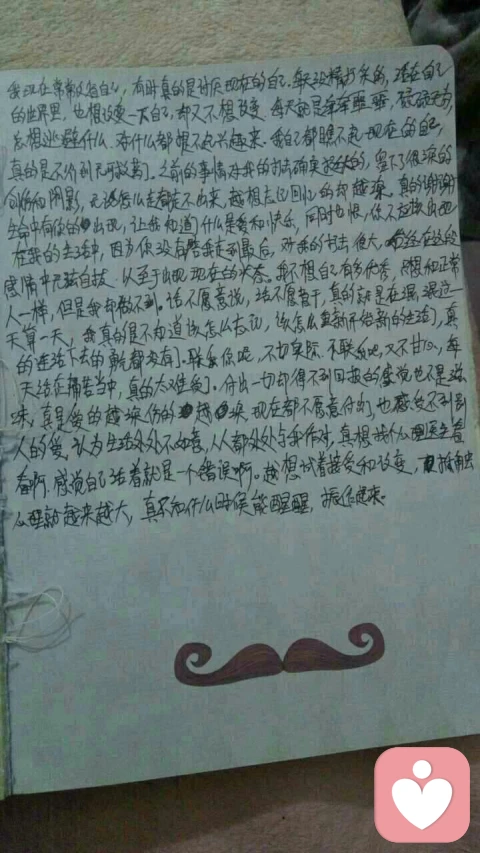 我现在常常敌对自己，有时真的是讨厌现在的自己。每天没精打采的，活在自己
的世界里，也想改变一下自己，却又不想改变，每天就是浑浑噩噩，碌碌无为，
总想逃避什么，为什么都提不起兴趣来。我自己都瞧不起现在的自己，
真的是不行到无可救药。之前的事情对我的打击确实挺大的，留下了很深的
回忆和阴影，无论怎么走都走不出来，越想忘记回忆的却越深。真的谢谢
生命中有你的出现，让我知道什么是爱和快乐，同时也恨，你不应该出现
在我的生活中，因为你没有陪我走到最后，对我的打击很大，在这段
感情中无法自拔，以至于出现现在的状态。我不想自己有多优秀，只想和正常
人一样，但是我却做不到。话不愿意说，活不愿意干，真的就是在混，混过一
天算一天，我真的是不知道该怎么忘记，该怎么重新开始新的生活了，真
的连活下去的勇气都没有了。联系你呢，不切实际，不联系吧，又不甘心，每
天活在痛苦当中，真的太难受了。付出一切却得不到回报的感觉也不是滋
味，真是爱的越深伤的越深，现在都不愿意付出了，也感受不到别
人的爱，认为生活处处不如意，人都处处与我作对，真想找个心理医生看
看啊，感觉自己活着就是一个错误啊。越想试着接受和改变，抵触
心理就越来越大，真不知什么时候能醒醒，振作起来。